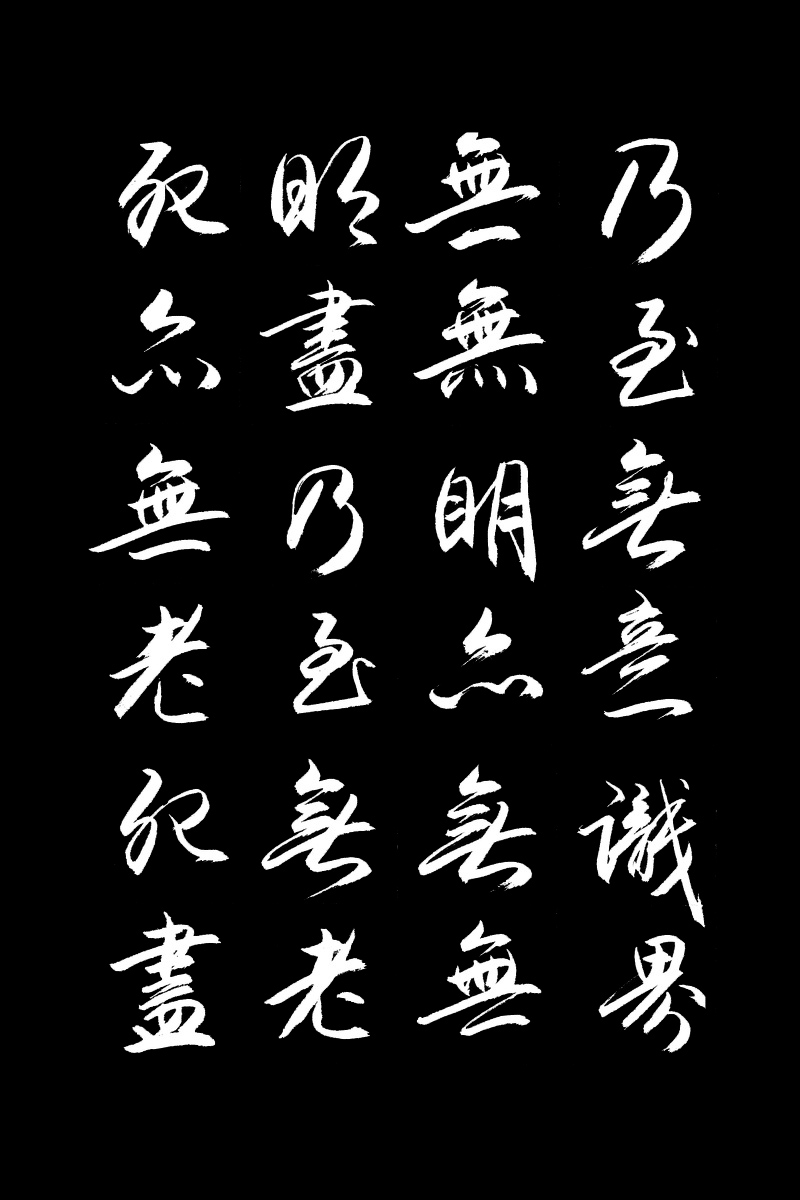 乃至無意識界
無無明亦無無
明盡乃至無老
死亦無老死盡